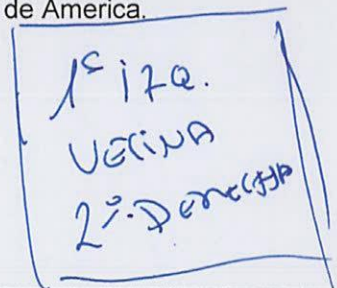 de America.
1º izq.
VECINA
2º. DERECHA